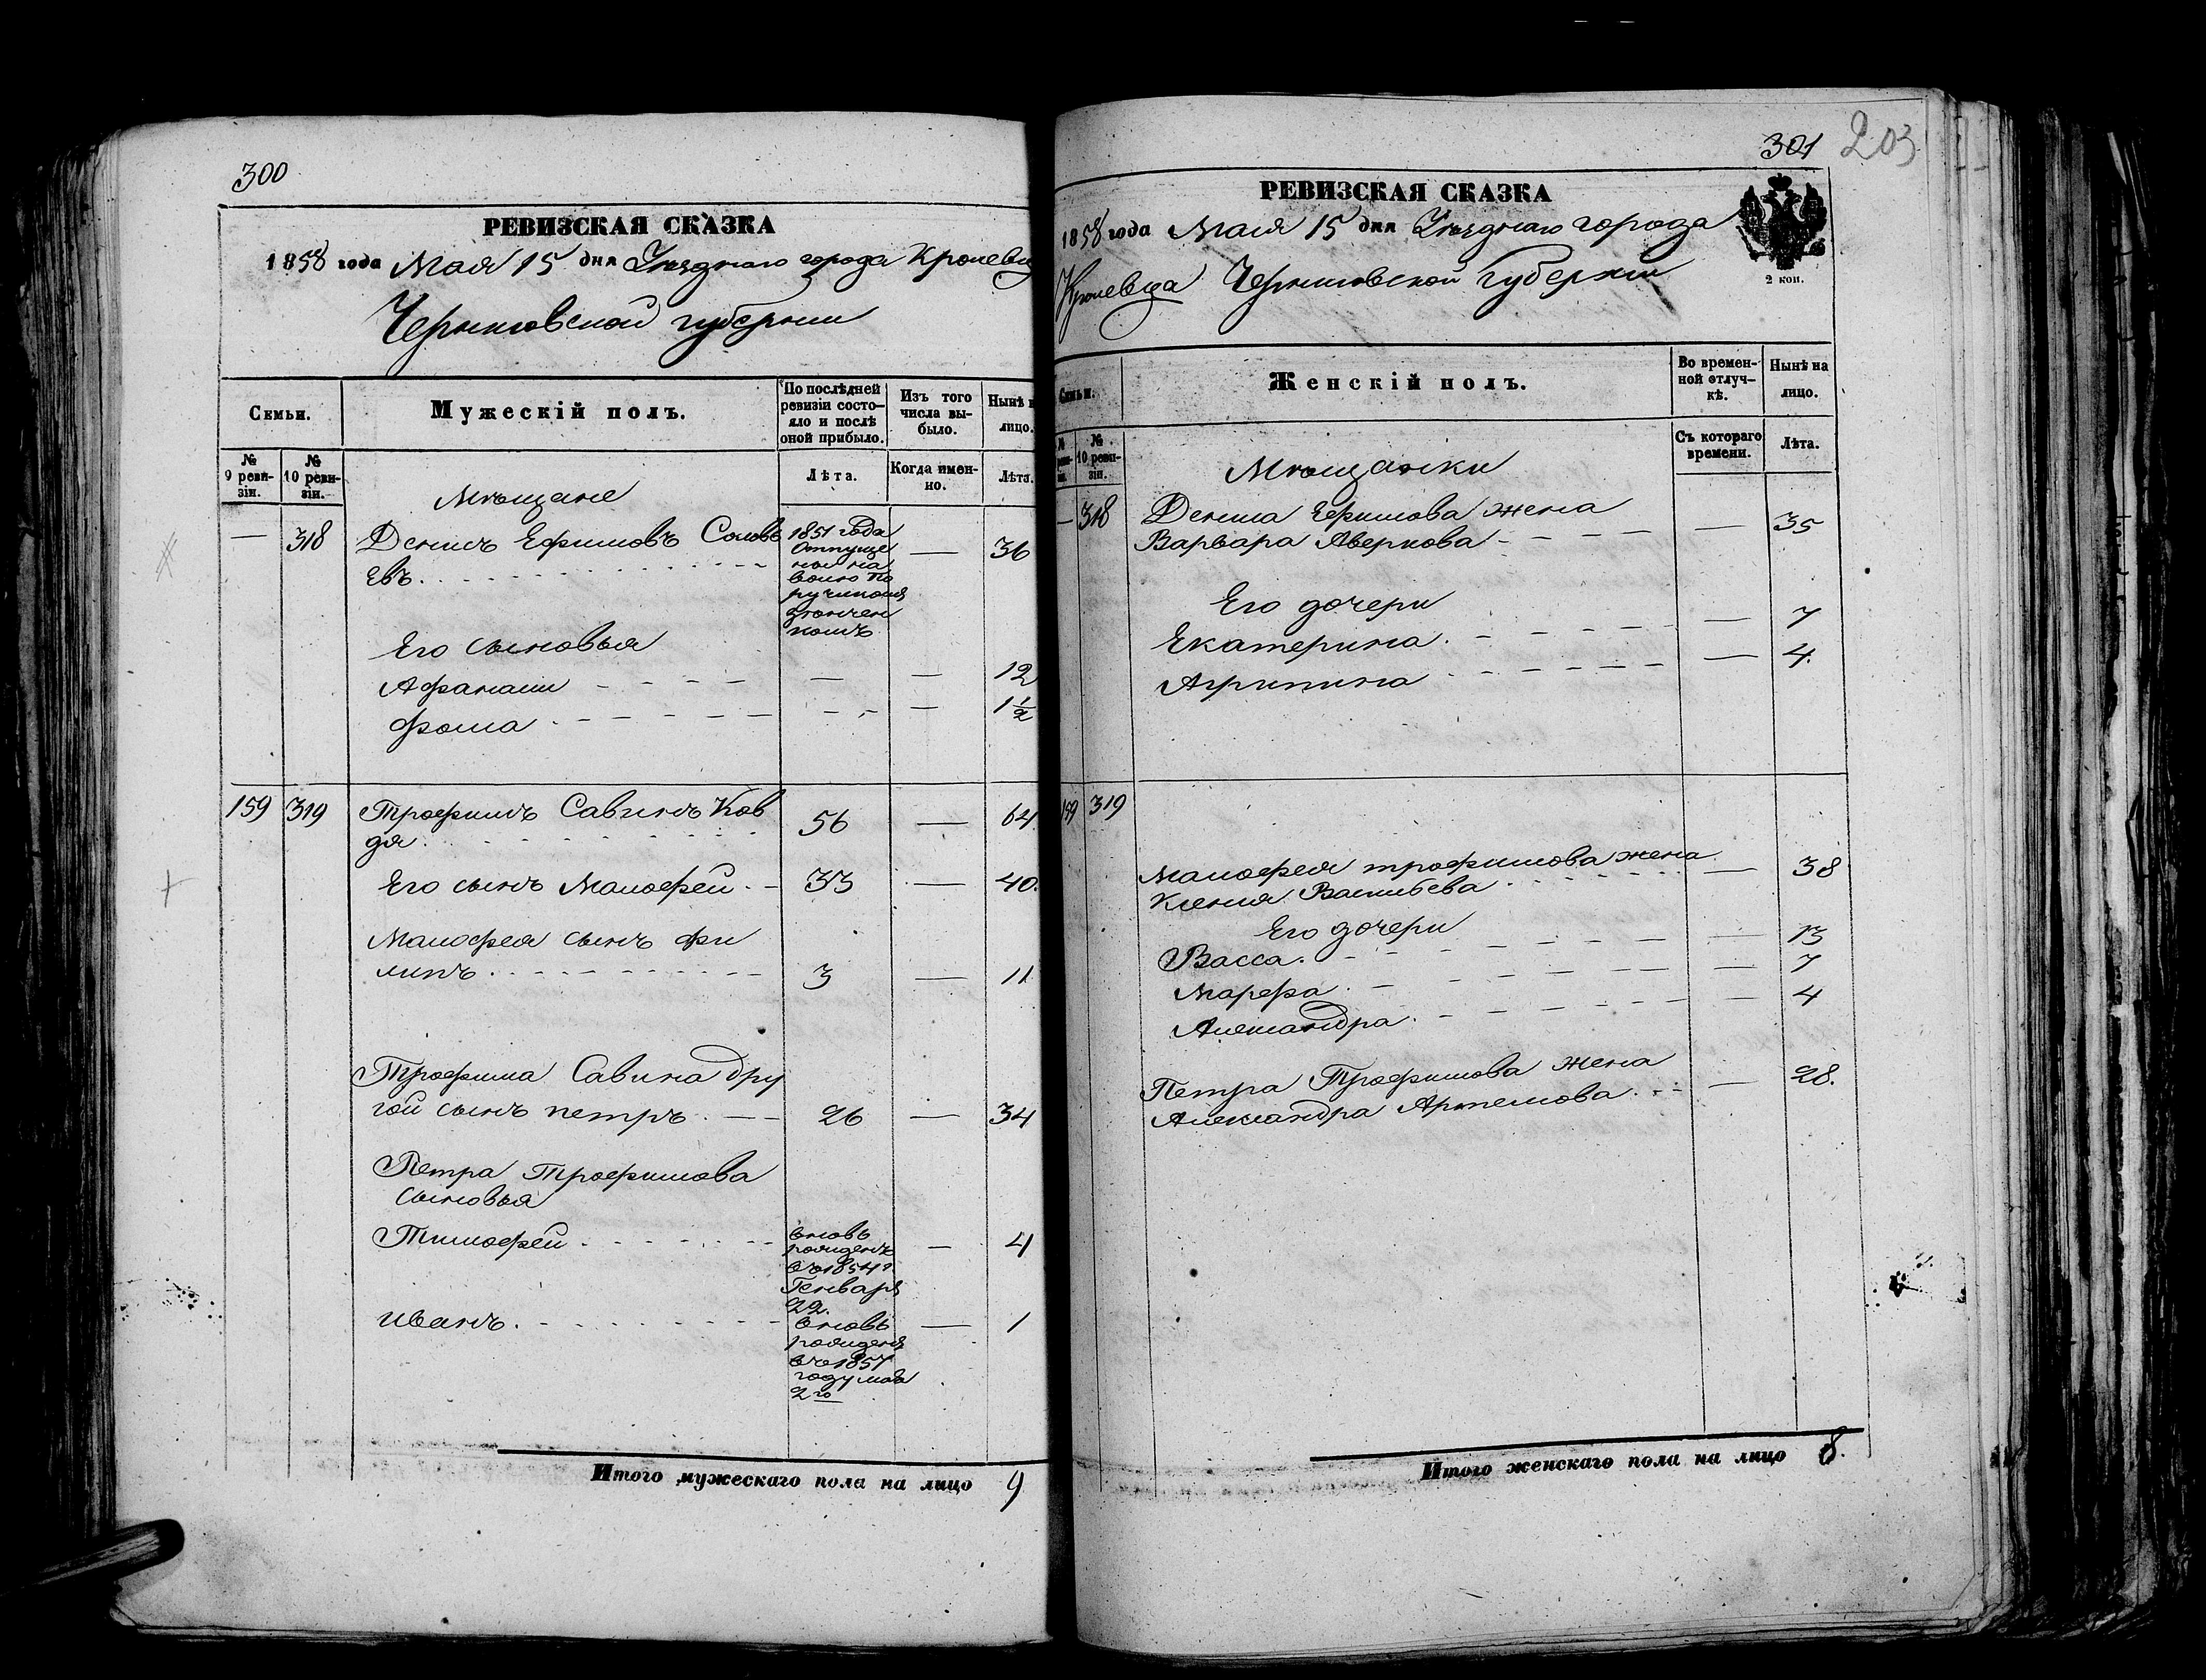 300
РЕВИЗСКАЯ СКАЗКА
1858 года Мая 15 дня Уезднаго города Кролевца
Черниговской губернии
Семьи.
Мужескій полъ.
По послѣдней ревизіи состояло и послѣ оной прибыло.
Изъ того числа выбыло.
Нынѣ на лицо.
№ 9 ревизіи.
№ 10 ревизіи.
Лѣта.
Когда именно.
Лѣта.
Мѣщане
— 318 Денисъ Ефимовъ Соловь — 36
евъ
1851 года
отпуще
ный на
волю по
ручиком
комъ
Его сыновья
Афанасий — — 12
Фома — — 1 1/2
159 319 Трофимъ Савинъ Ков 56 — 64
дя
Его сынъ Малофей 33 — 40.
Малофея сынъ Фи
липъ 3 — 11
Трофима Савина дру
гой сынъ петръ 26 — 34
Петра Трофимова
сыновья
Тимофей — 4
вновь
рожденъ
въ 1854 г.
Генваря
22.
Иванъ — 1
вновь
рожденъ
въ 1857
году мая
2го
Итого мужескаго пола на лицо 9
301 203
РЕВИЗСКАЯ СКАЗКА
1858 года Мая 15 дня Уезднаго города
Кролевца Черниговской Губернии
2 коп.
Семьи.
Женскій полъ.
Во временной отлучкѣ.
Нынѣ на лицо.
№ 10 ревизіи.
Съ котораго времени.
Лѣта.
Мѣщанки
— 318 Дениса Ефимова жена
Варвара Аверкова — 35
Его дочери
Екатерина — 7
Агрипина — 4.
159 319
Малофея трофимова жена
Ксения Васильева — 38
Его дочери
Васса — 13
Марфа — 7
Александра — 4
Петра Трофимова жена
Александра Артемова — 28.
Итого женскаго пола на лицо 8.